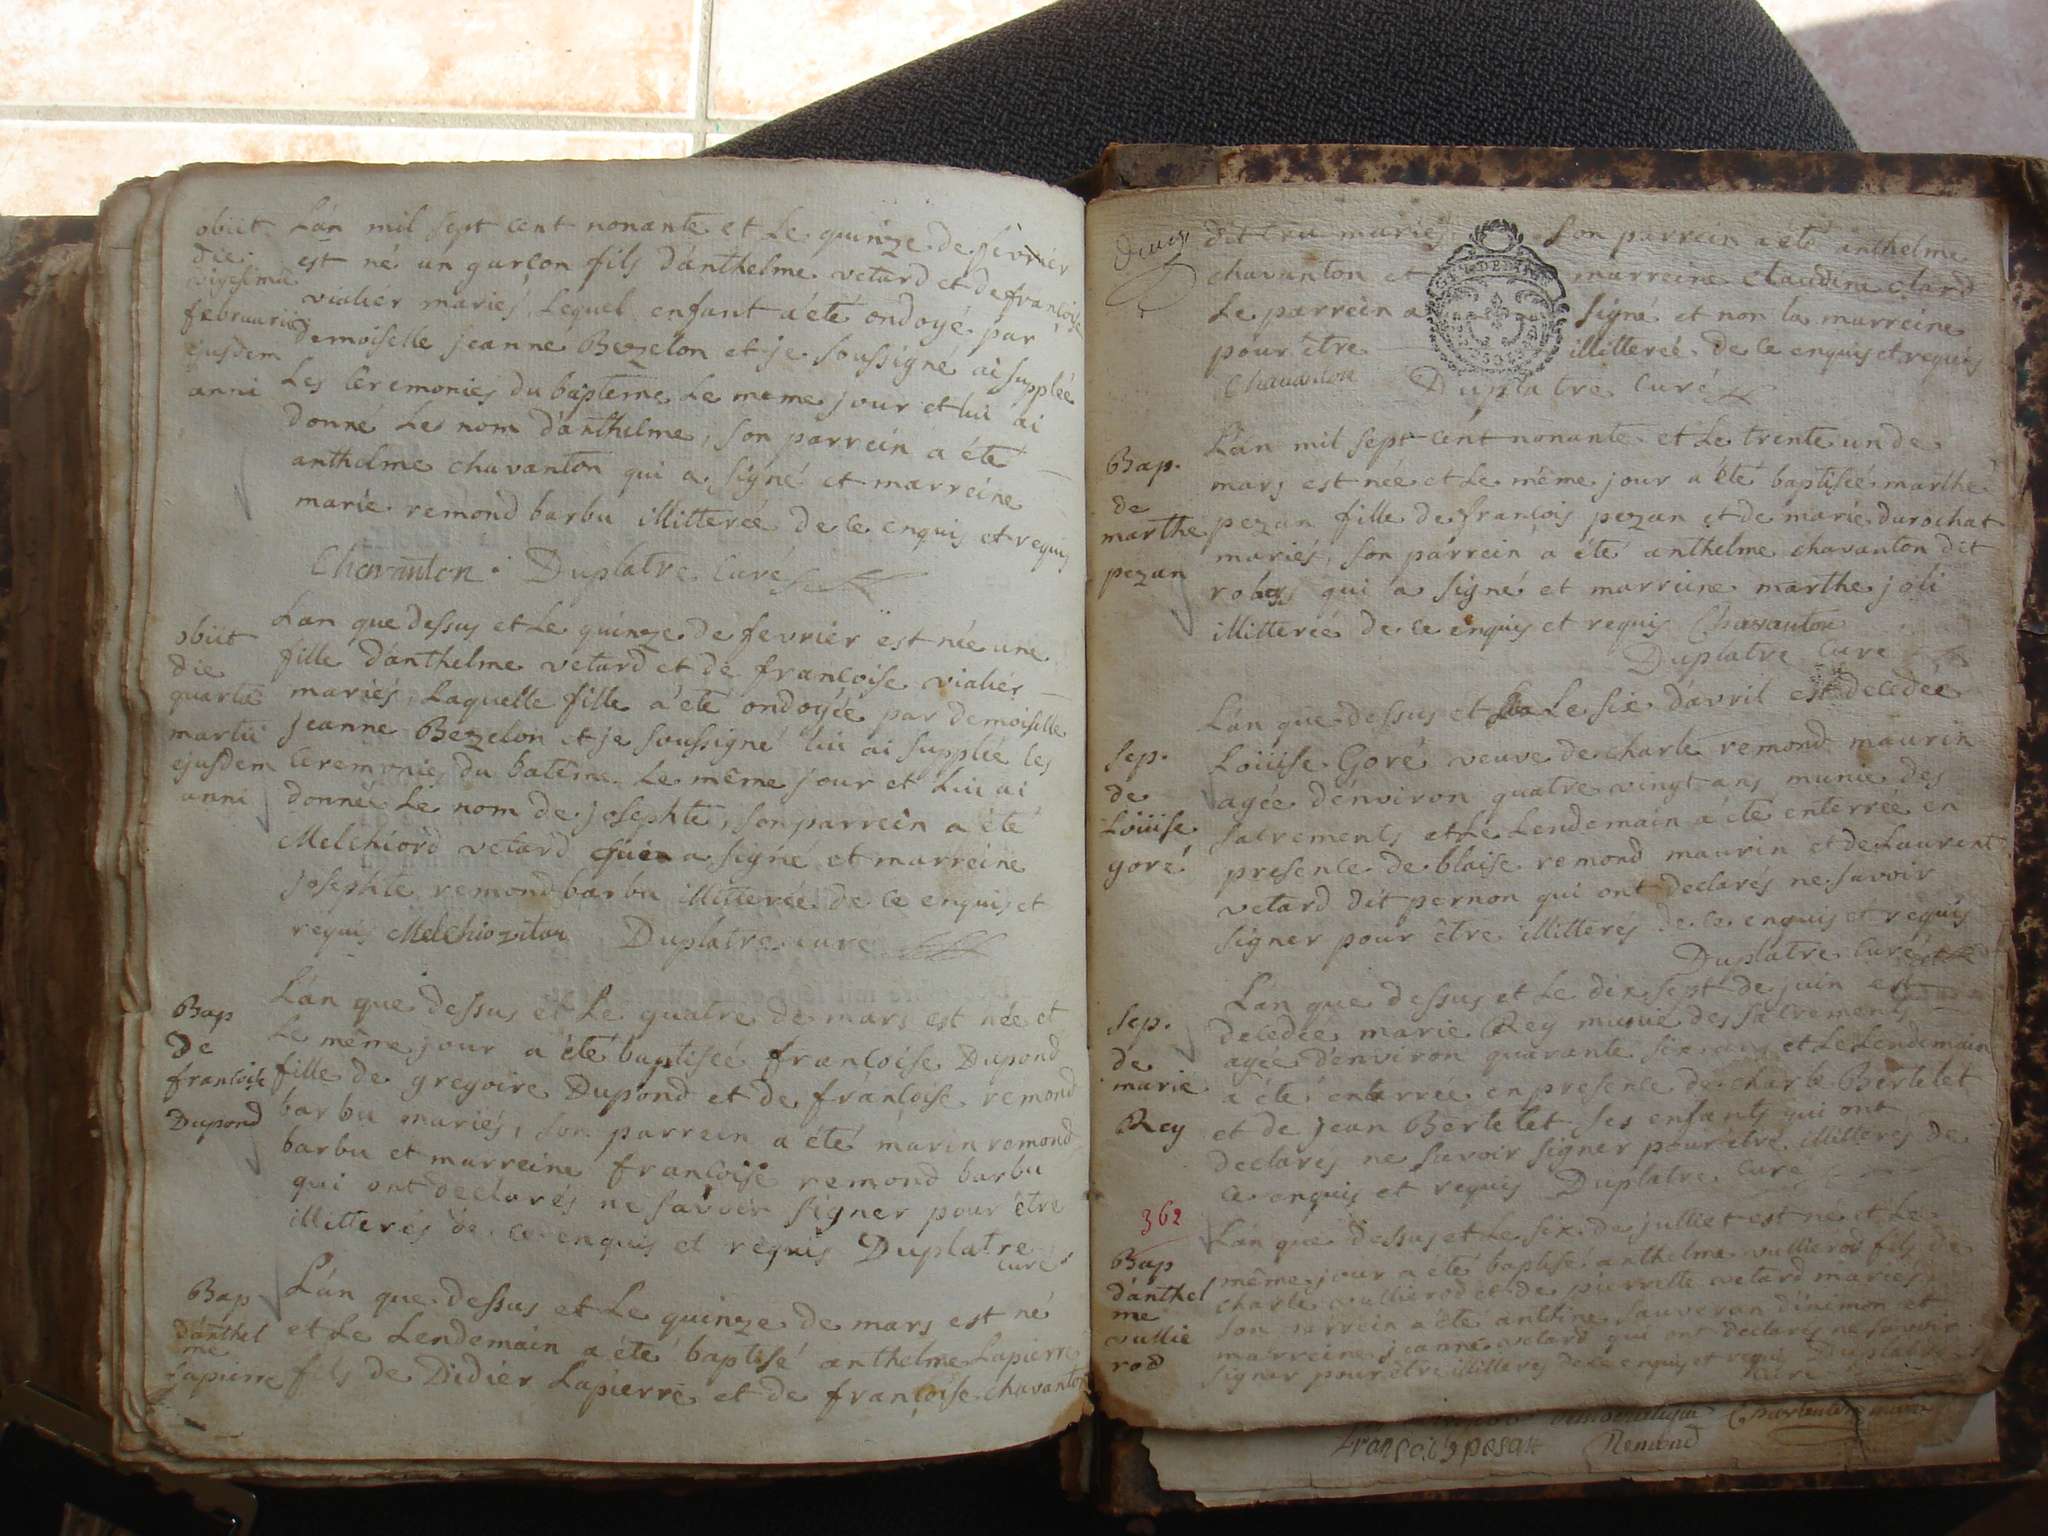 obiit
die
vigesima
februarii
ejusdem
anni
L'án mil sept cent nonante et le quinze de fevriér
est né un garçon fils d'anthelme vetard et de françoise
vialiér mariés, lequel enfant a été ondoyé par
demoiselle jeanne Bezelon et je soussigné ai supplée
les ceremonies du bapteme le meme jour et lui ai
donné le nom d'anthelme, son parrein a été
anthelme chavanton qui a signé et marreine
marie remond barbu illitterée de ce enquis et requis
Chavanton. Duplatre Curé
obiit
die
quarta
martii
ejusdem
anni
L'an que dessus et le quinze de fevriér est née une
fille d'anthelme vetard et de françoise vialiér
mariés, laquelle fille a été ondoyée par demoiselle
jeanne Bezelon et je soussigné lui ai supplié les
ceremonies du batême le même jour et lui ai
donnée le nom de josephte, son parrein a été
Melchiord vetard qui a signé et marreine
josephte remond barbu illitterée de ce enquis et
requis Melchiozitar Duplatre curé
Bap
de
françoise
Dupond
L'án que dessus et le quatre de mars est née et
le même jour a été baptiseé françoise Dupond
fille de gregoire Dupond et de françoise remond
barbu mariés, son parrein a été marin remond
barbu et marreine françoise remond barbu
qui ont declarés ne savoir signer pour être
illitterés de ce enquis et requis Duplatre
curé
Bap
d'anthel
me
Lapierre
L'án que dessus et le quinze de mars est né
et le lendemain a été baptisé anthelme Lapierre
fils de Didiér Lapierre et de françoise chavanton
dit cru mariés Son parrein a été anthelme
chavanton et marreine claudine clard
le parrein a signé et non la marreine
pour être illittereé de ce enquis et requis
Chavanton Duplatre Curé
Bap.
de
marthe
pezan
L'án mil sept cent nonante et le trente un de
mars est née et le même jour a été baptiseé marthe
pezan fille de françois pezan et de marie durochat
mariés, son parrein a été anthelme chavanton dit
qui a signé et marreine marthe joli
illittereé de ce enquis et requis Chavanton
Duplatre Curé
Sep.
de
Loüise
goré
L'án que dessus et le six d'avril est decedeé
Loüise Goré veuve de charle remond maurin
ageé d'énviron quatre vingt ans munie des
sacrements et le lendemain a été enterreé en
presence de blaise remond maurin et de Laurent
vetard dit pernon qui ont declarés ne savoir
signer pour être illitterés de ce enquis et requis
Duplatre Curé
Sep.
de
marie
Rey
L'án que dessus et le dix sept de juin est
decedée marie Rey munie des sacrements
ageé d'énviron quarante six ans et le lendemain
a été enterreé en presence de charle Bertelet
et de jean Bertelet ses enfants qui ont
declarés ne savoir signer pour être illitterés de
ce enquis et requis Duplatre Curé
362
Bap
d'ánthel
me
vullie
rod
L'án que dessus et le six de julliet est né et le
même jour a été baptisé anthelme vullierod fils de
charle vullierod et de pierrette vetard mariés
son parrein a été antoine sauveran d'inemon et
marreine jeanne vetard qui ont declarés ne savoir
signer pour être illitterés de ce enquis et requis Duplatre
Curé
françois pesan Remond